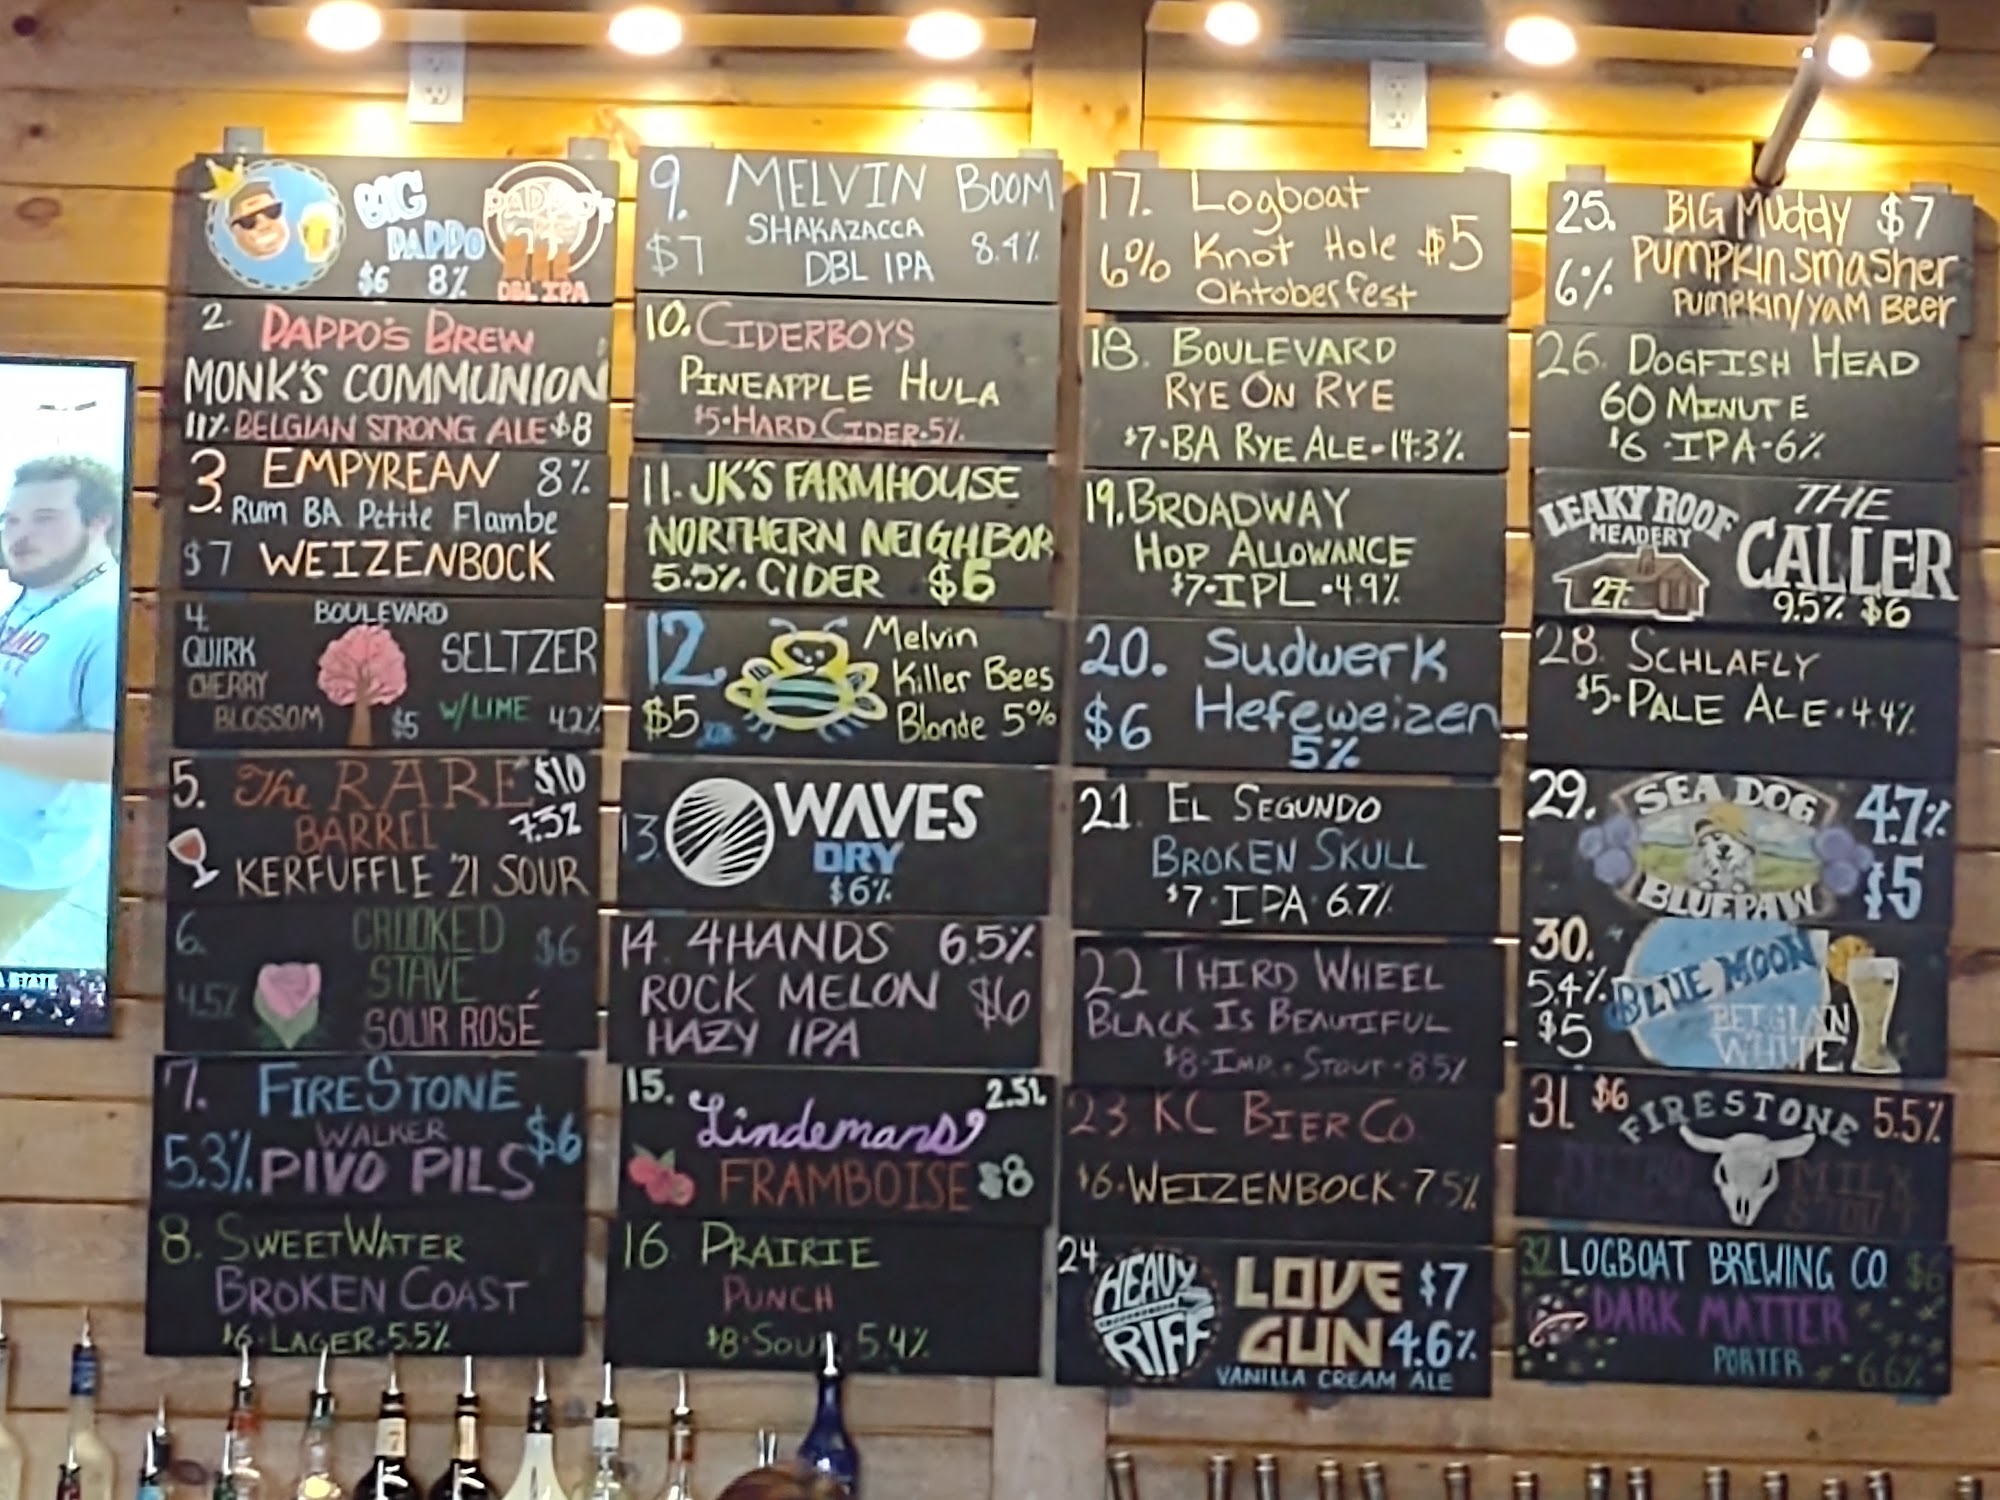 BIG
PAPPO
PAPPO'S
$6 8%
DBL IPA
2. PAPPO'S BREW
MONK'S COMMUNION
11% BELGIAN STRONG ALE $8
3. EMPYREAN 8%
Rum BA Petite Flambe
$7 WEIZENBOCK
4. BOULEVARD
QUIRK SELTZER
CHERRY
BLOSSOM $5 W/LIME 4.2%
5. The RARE $10
BARREL 7.3%
KERFUFFLE '21 SOUR
6. CROOKED $6
STAVE
4.5% SOUR ROSÉ
7. FIRESTONE
WALKER $6
5.3% PIVO PILS
8. SWEETWATER
BROKEN COAST
$6·LAGER·5.5%
9. MELVIN BOOM
$7 SHAKAZACCA 8.4%
DBL IPA
10. CIDERBOYS
PINEAPPLE HULA
$5·HARD CIDER·5%
11. JK'S FARMHOUSE
NORTHERN NEIGHBOR
5.5% CIDER $6
12. Melvin
Killer Bees
$5 Blonde 5%
13. WAVES
DRY
$6%
14. 4HANDS 6.5%
ROCK MELON $6
HAZY IPA
15. Lindemans 2.5%
FRAMBOISE $8
16 PRAIRIE
PUNCH
$8·SOUR 5.4%
17. Logboat
6% Knot Hole $5
Oktoberfest
18. BOULEVARD
RYE ON RYE
$7·BA RYE ALE·14.3%
19. BROADWAY
HOP ALLOWANCE
$7·IPL·4.9%
20. Sudwerk
$6 Hefeweizen
5%
21. EL SEGUNDO
BROKEN SKULL
$7·IPA 6.7%
22 THIRD WHEEL
BLACK IS BEAUTIFUL
$8·IMP.·STOUT·8.5%
23 KC BIER CO.
$6·WEIZENBOCK·7.5%
24 HEAVY
RIFF
LOVE $7
GUN 4.6%
VANILLA CREAM ALE
25. BIG MUDDY $7
6% PUMPKIN SMASHER
PUMPKIN/YAM BEER
26. DOGFISH HEAD
60 MINUTE
$6·IPA·6%
LEAKY ROOF
MEADERY
27.
THE
CALLER
9.5% $6
28. SCHLAFLY
$5·PALE ALE·4.4%
29. SEA DOG 4.7%
BLUEPAW $5
30. BLUE MOON
5.4% BELGIAN
$5 WHITE
31 $6 FIRESTONE 5.5%
NITRO MILK
STOUT
32 LOGBOAT BREWING CO. $6
DARK MATTER
PORTER 6.6%